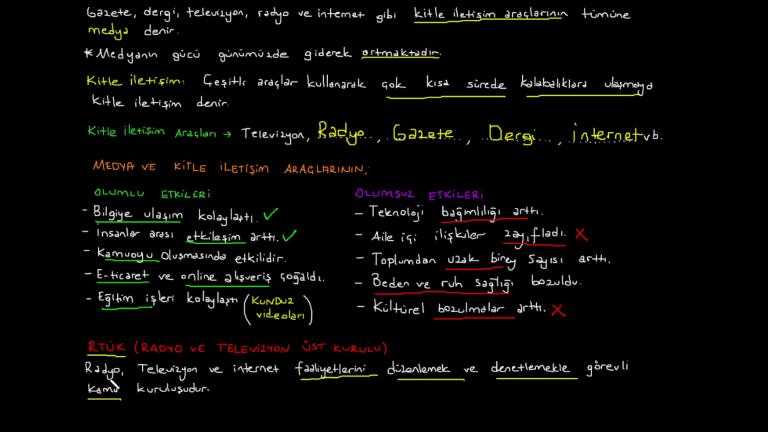 Gazete, dergi, televizyon, radyo ve internet gibi kitle iletişim araçlarının tümüne
medya denir.
* Medyanın gücü günümüzde giderek artmaktadır.
Kitle iletişim: Çeşitli araçlar kullanarak çok kısa sürede kalabalıklara ulaşmaya
kitle iletişim denir.
Kitle iletişim Araçları → Televizyon, Radyo..., Gazete..., Dergi..., internet vb.
MEDYA VE KİTLE İLETİŞİM ARAÇLARININ;
OLUMLU ETKİLERİ
- Bilgiye ulaşım kolaylaştı. ✓
- İnsanlar arası etkileşim arttı. ✓
- Kamuoyu oluşmasında etkilidir.
- E-ticaret ve online alışveriş çoğaldı.
- Eğitim işleri kolaylaştı (KUNDUZ videoları)
OLUMSUZ ETKİLERİ
- Teknoloji bağımlılığı arttı.
- Aile içi ilişkiler zayıfladı. X
- Toplumdan uzak birey sayısı arttı.
- Beden ve ruh sağlığı bozuldu.
- Kültürel bozulmalar arttı. X
RTÜK (RADYO VE TELEVİZYON ÜST KURULU)
Radyo, Televizyon ve internet faaliyetlerini düzenlemek ve denetlemekle görevli
kamu kuruluşudur.